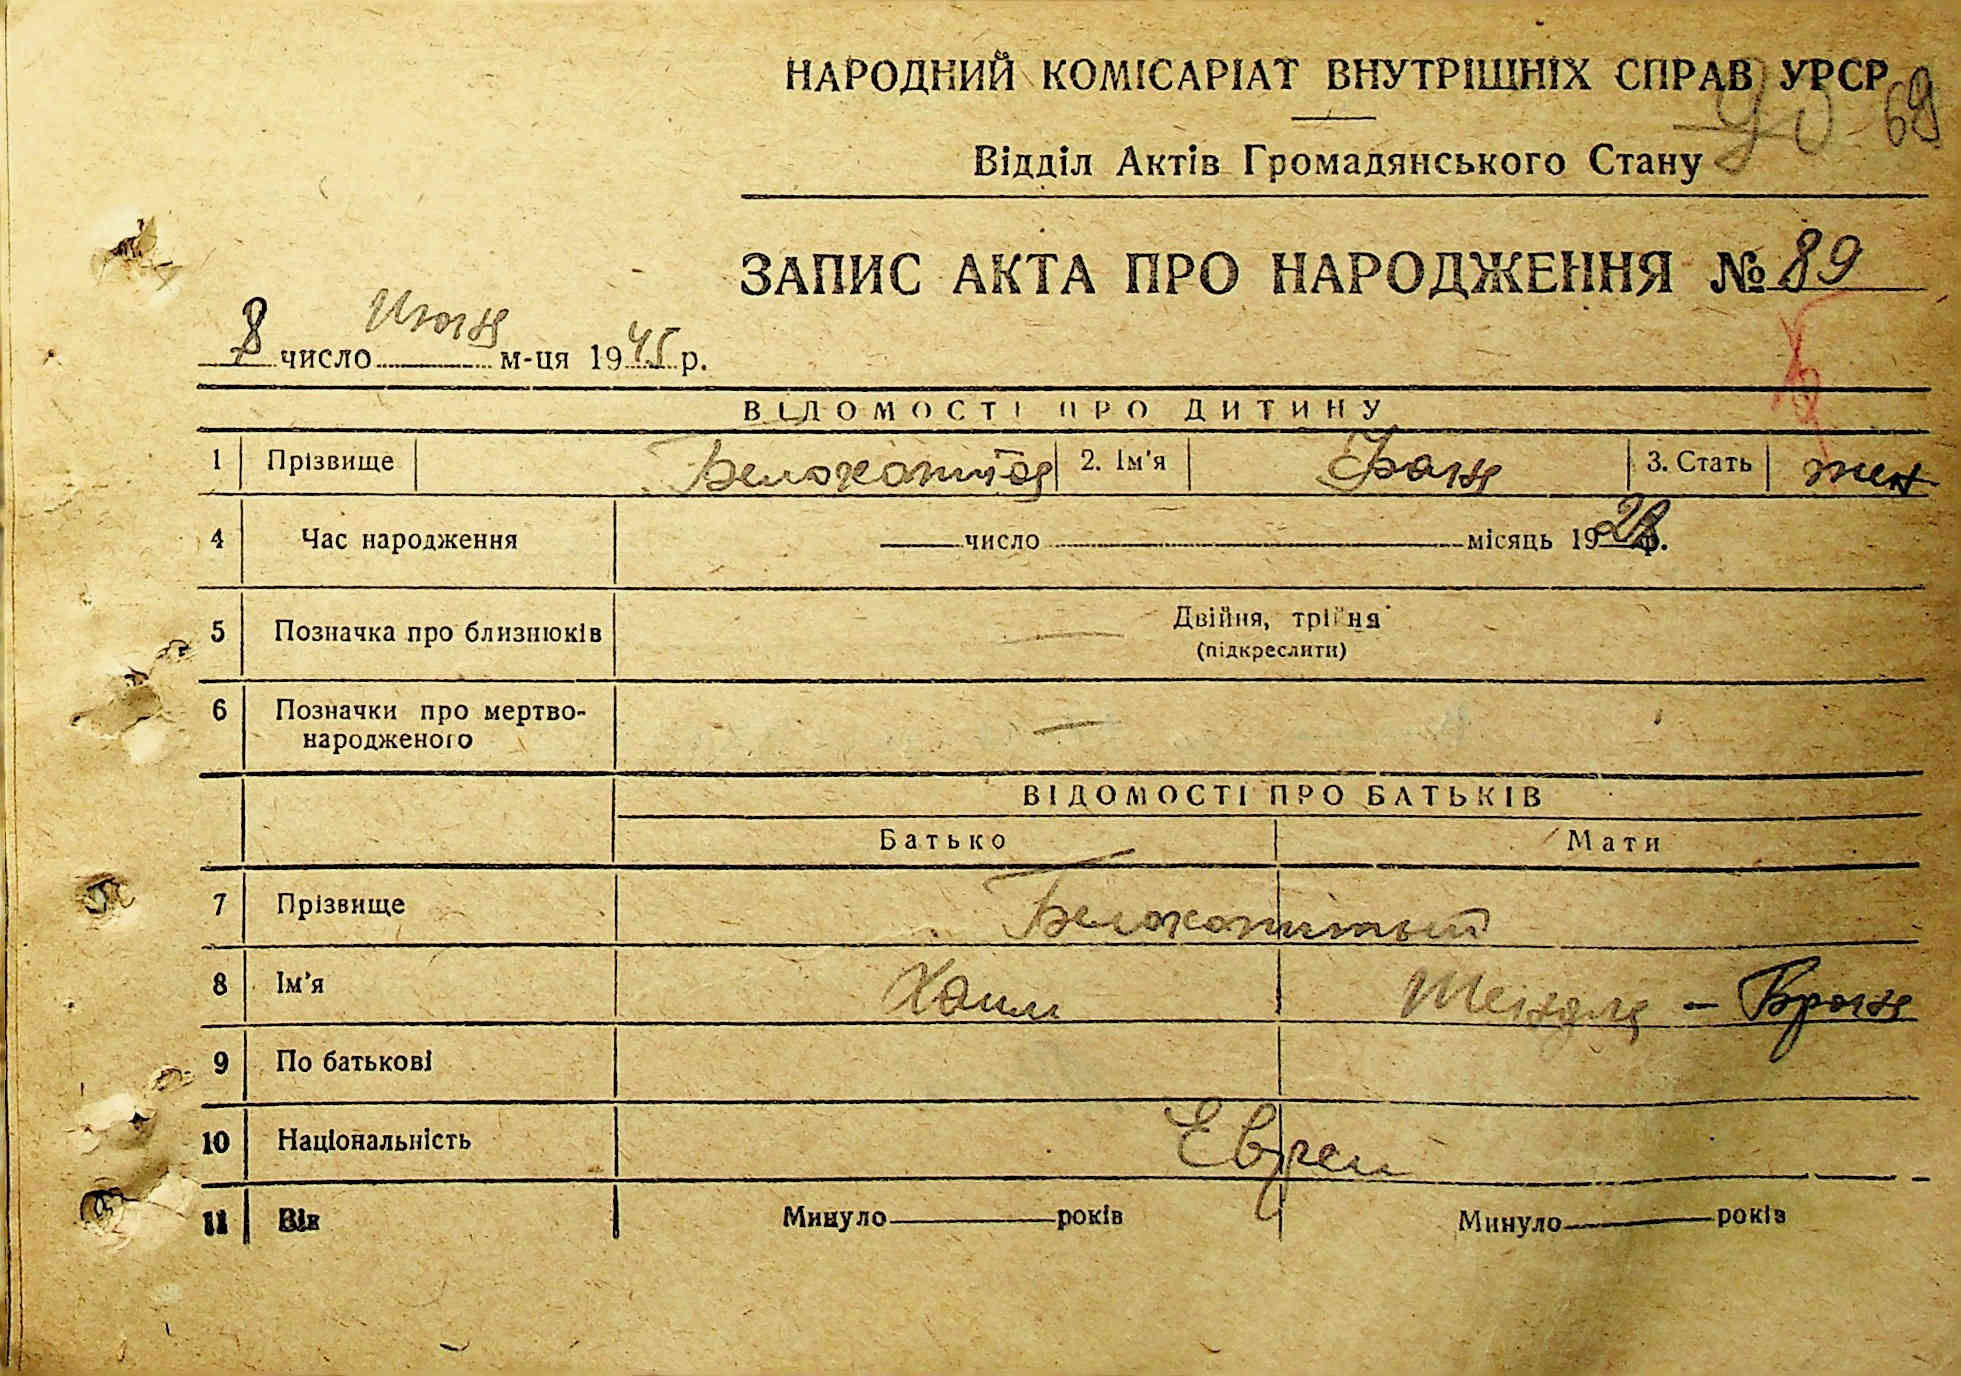 НАРОДНИЙ КОМІСАРІАТ ВНУТРІШНІХ СПРАВ УРСР
69
Відділ Актів Громадянського Стану
ЗАПИС АКТА ПРО НАРОДЖЕННЯ № 89
8 число Июня м-ця 1945 р.
ВІДОМОСТІ ПРО ДИТИНУ
1 Прізвище Белокопитая 2. Ім'я Фаня 3. Стать жен
4 Час народження число місяць 1928 р.
5 Позначка про близнюків Двійня, трійня
(підкреслити)
6 Позначки про мертво-
народженого
ВІДОМОСТІ ПРО БАТЬКІВ
Батько Мати
7 Прізвище Белокопитый
8 Ім'я Хаим Шендля - Броня
9 По батькові
10 Національність Евреи
11 Вік Минуло років Минуло років